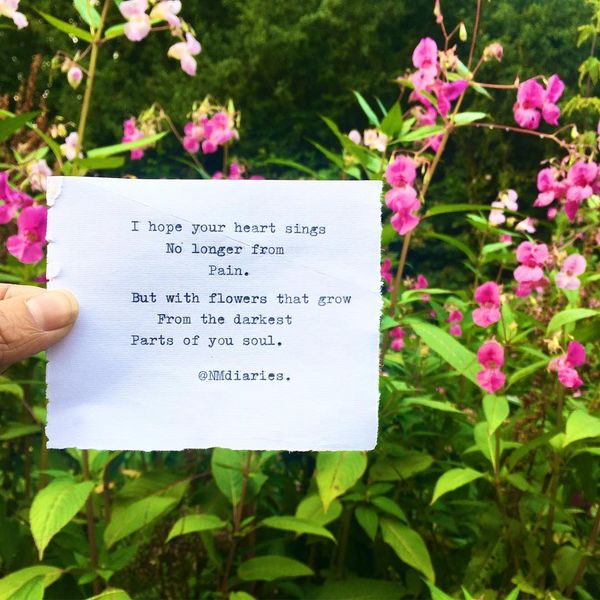 I hope your heart sings
No longer from
Pain.
But with flowers that grow
From the darkest
Parts of you soul.
@NMdiaries.